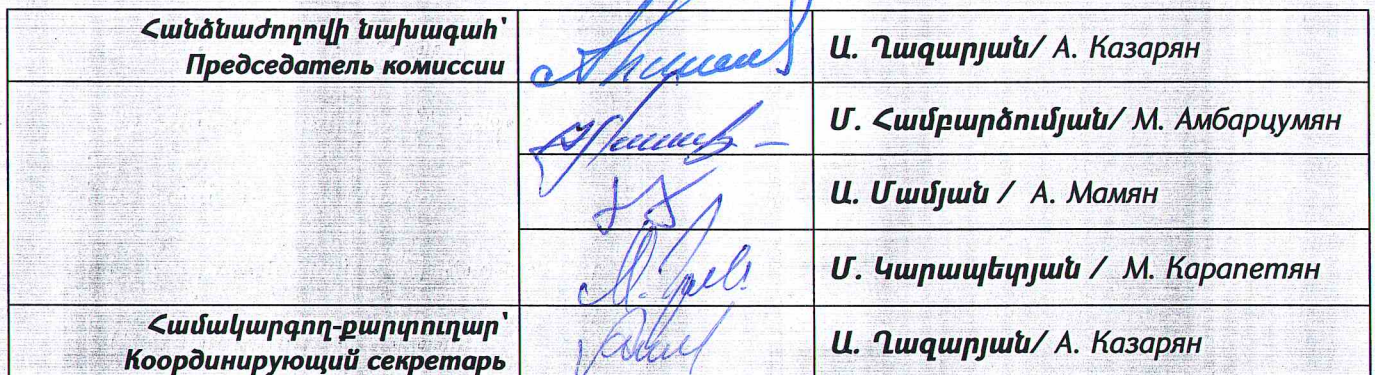 Հանձնաժողովի նախագահ՝
Председатель комиссии
Ա. Ղազարյան/ А. Казарян
Մ. Համբարձումյան/ М. Амбарцумян
Ա. Մամյան / А. Мамян
Մ. Կարապետյան / М. Карапетян
Համակարգող-քարտուղար՝
Координирующий секретарь
Ա. Ղազարյան/ А. Казарян